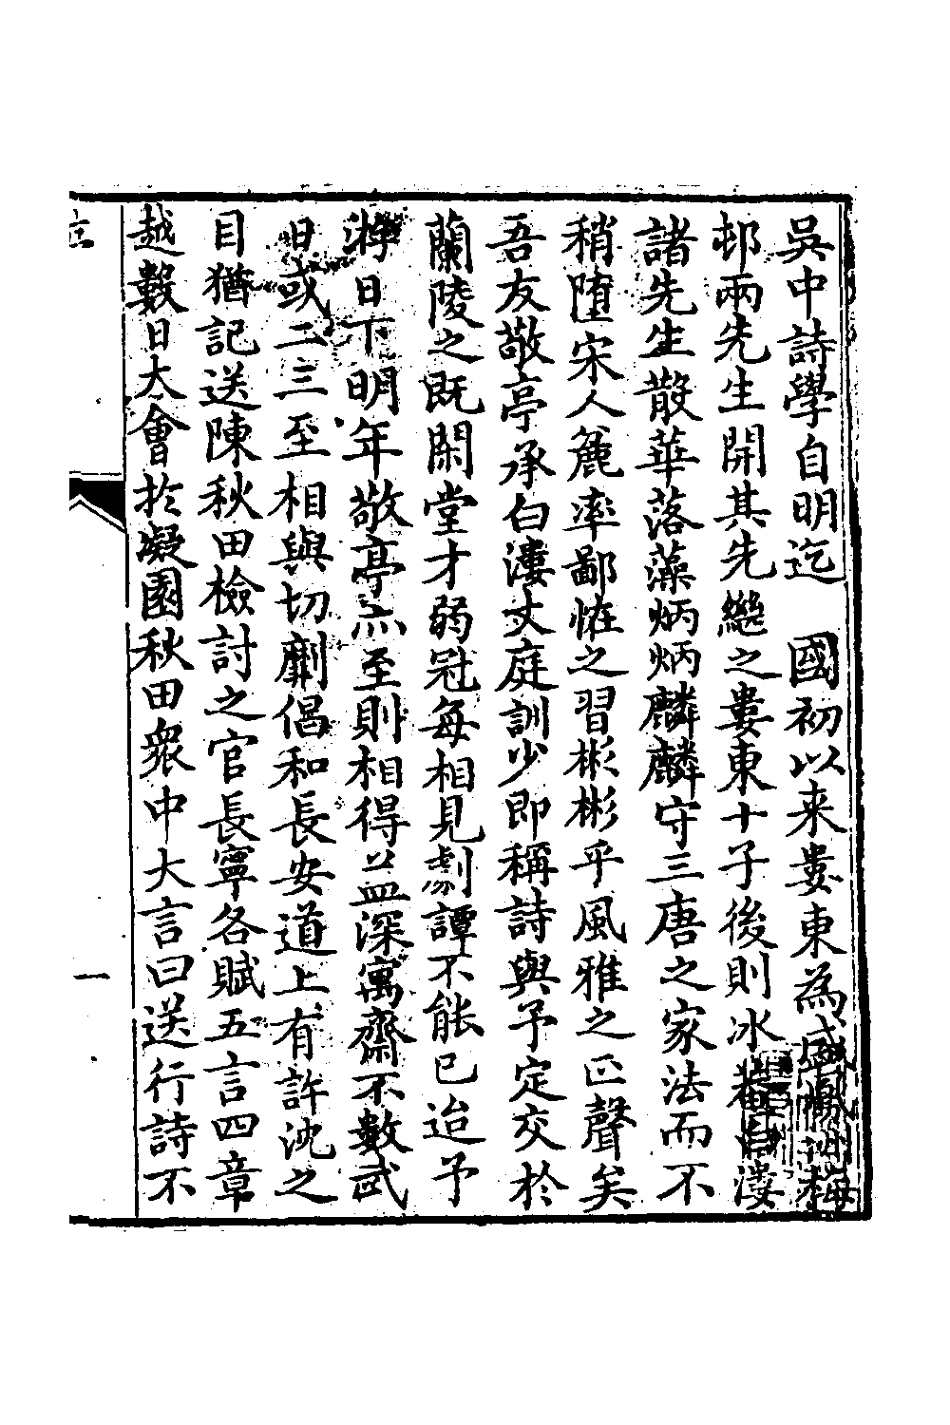 吳中詩學自明迄　國初以来婁東為盛鳳洲梅
邨兩先生開其先繼之婁東十子後則冰菴白漊
諸先生散華落藻炳炳麟麟守三唐之家法而不
稍墮宋人麄率鄙怪之習彬彬乎風雅之正聲矣
吾友敬亭承白漊丈庭訓少即稱詩與予定交於
蘭陵之既閑堂才弱冠每相見劇譚不能已迨予
滯日下明年敬亭亦至則相得益深寓齋不數武
日或二三至相與切劘倡和長安道上有許沈之
目猶記送陳秋田檢討之官長寧各賦五言四章
越數日大會於凝園秋田衆中大言曰送行詩不
一